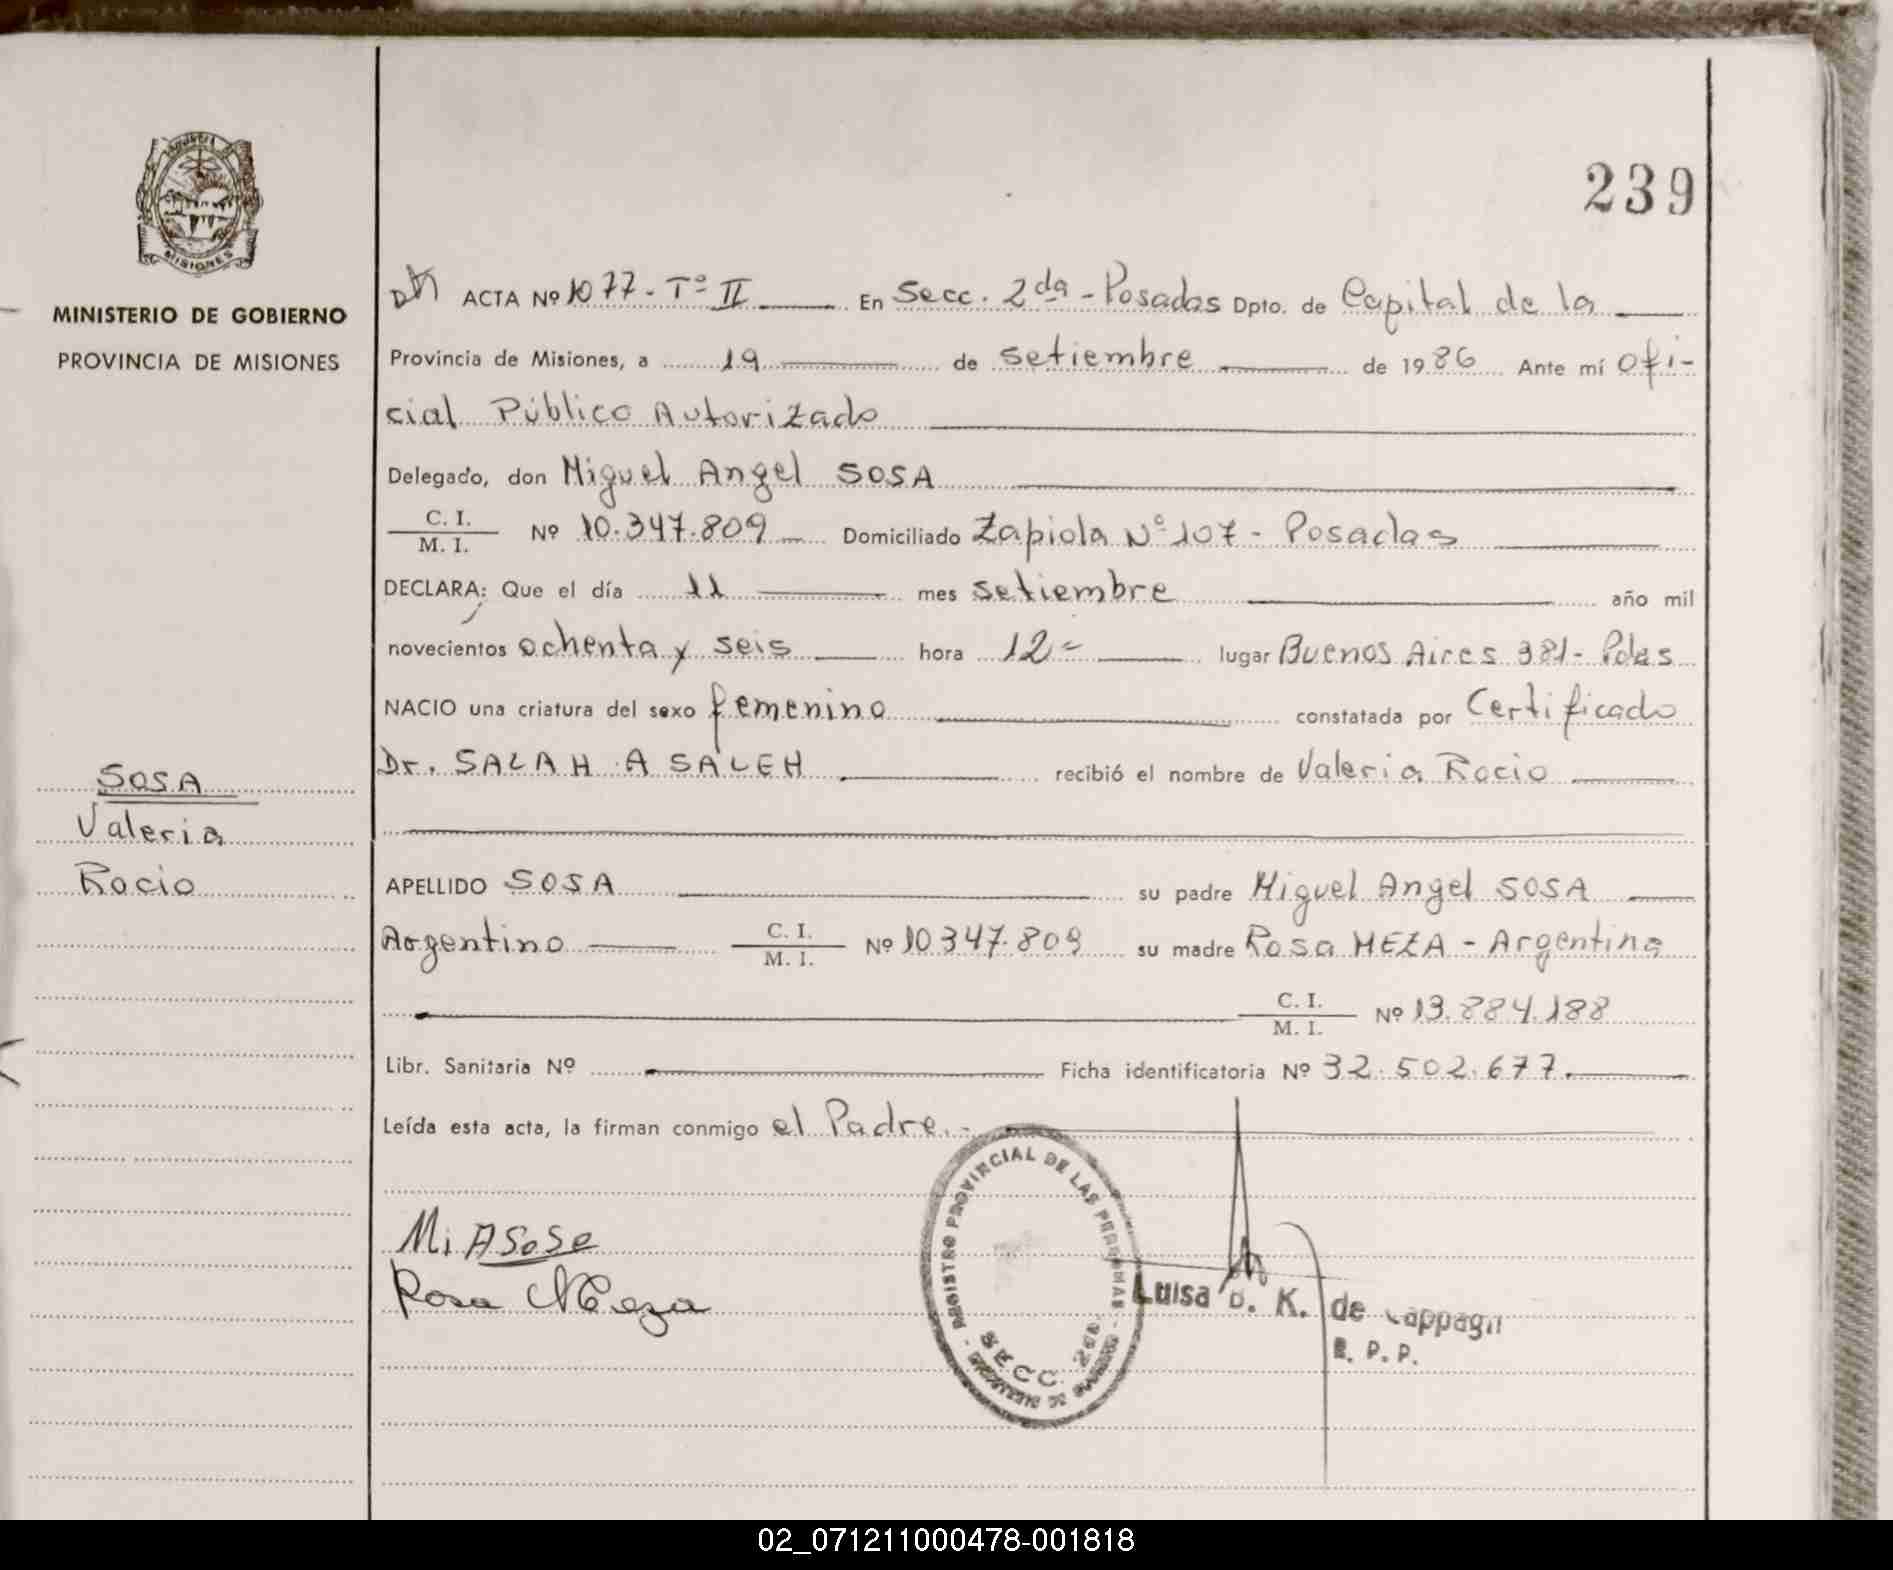 239
MISIONES
MINISTERIO DE GOBIERNO
PROVINCIA DE MISIONES
ACTA Nº 1077 - Tº II En Secc. 2da - Posadas Dpto. de Capital de la
Provincia de Misiones, a 19 de setiembre de 1986 Ante mí Ofi-
cial Público Autorizado
Delegado, don Miguel Angel SOSA
C. I.
M. I. Nº 10.347.809 Domiciliado Zapiola Nº 107 - Posadas
DECLARA: Que el día 11 mes setiembre año mil
novecientos ochenta y seis hora 12 lugar Buenos Aires 381 - Pdas
NACIO una criatura del sexo femenino constatada por Certificado
Dr. SALAH A SALEH recibió el nombre de Valeria Rocio
SOSA
Valeria
Rocio
APELLIDO SOSA su padre Miguel Angel SOSA
Argentino C. I.
M. I. Nº 10.347.809 su madre Rosa MEZA - Argentina
C. I.
M. I. Nº 13.884.188
Libr. Sanitaria Nº Ficha identificatoria Nº 32.502.677.
Leída esta acta, la firman conmigo el Padre.-
REGISTRO PROVINCIAL DE LAS PERSONAS
SECC. 2da
Rosa Meza
Luisa D. K. de
P. P.
02_071211000478-001818